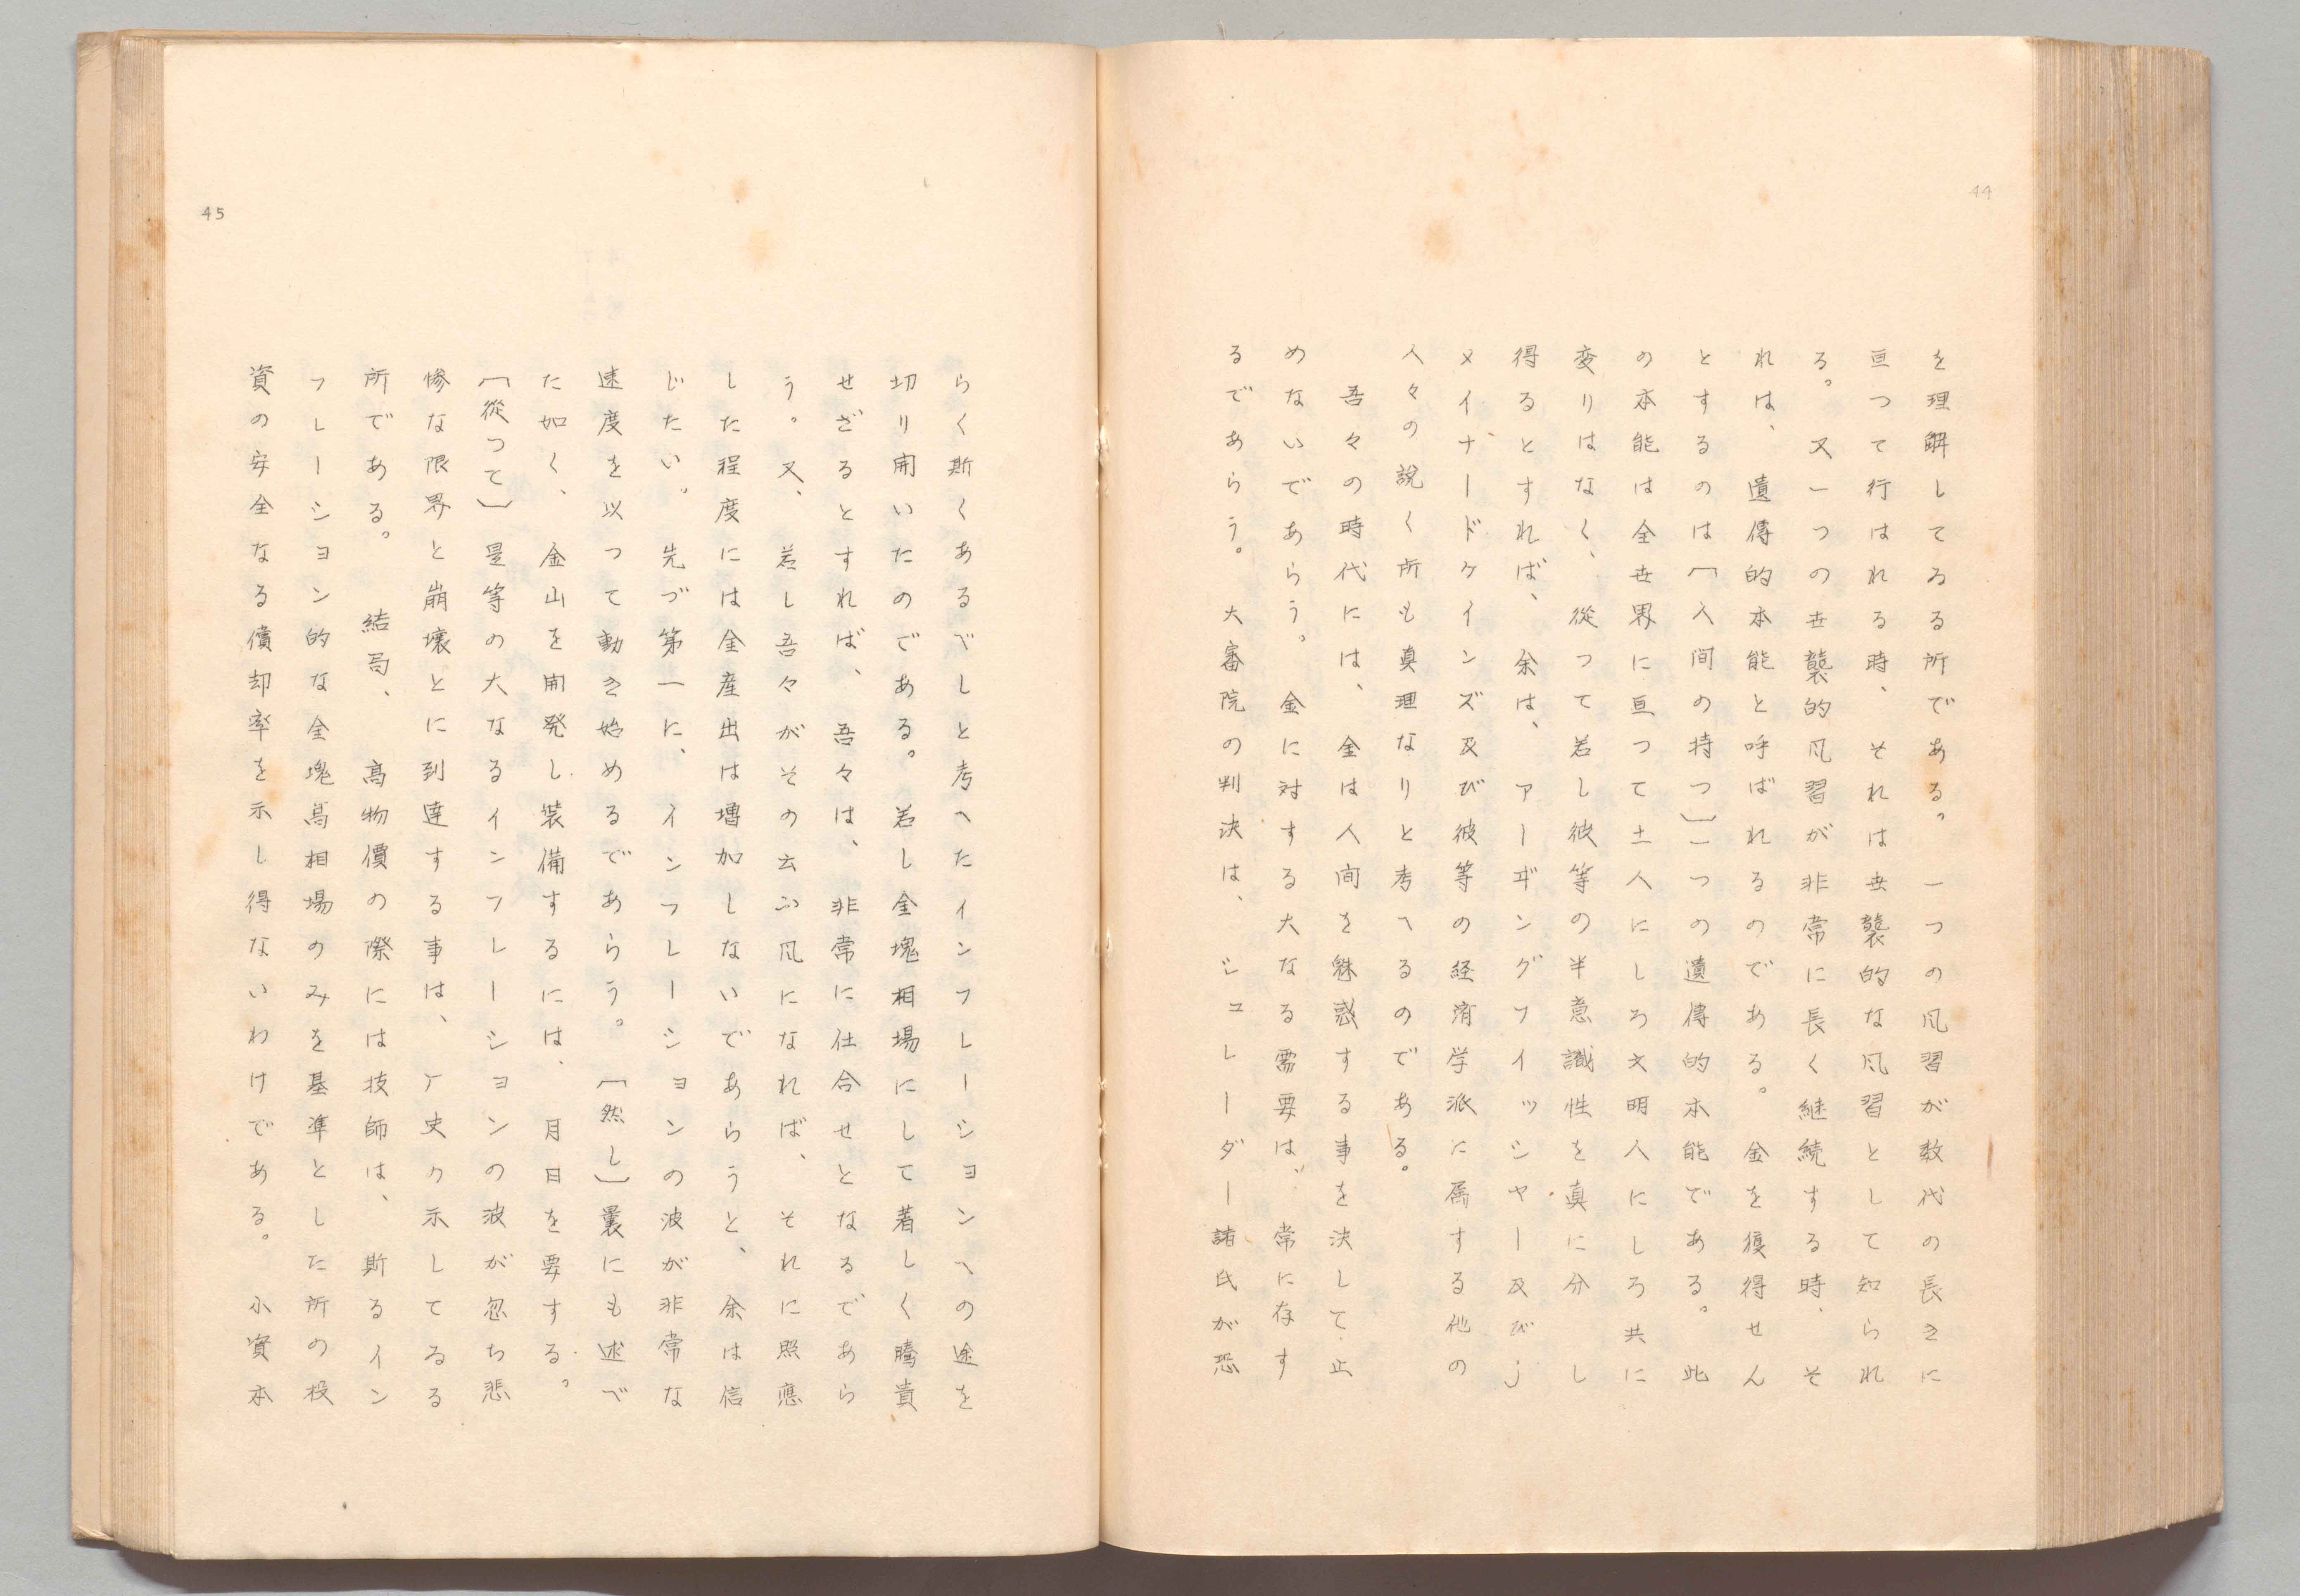 44
を理解してゐる所である。一つの風習が数代の長きに
亘つて行はれる時、それは世襲的な風習として知られ
る。又一つの世襲的風習が非常に長く継続する時、そ
れは、遺傳的本能と呼ばれるのである。金を獲得せん
とするのは〔人間の持つ〕一つの遺傳的本能である。此
の本能は全世界に亘つて土人にしろ文明人にしろ共に
変りはなく、從つて若し彼等の半意識性を真に分し
得るとすれば、余は、アーヰングフイッシヤー及びj
メイナードケインズ及び彼等の経済学派に属する他の
人々の說く所も真理なりと考へるのである。
吾々の時代には、金は人間を魅惑する事を決して止
めないであらう。金に対する大なる需要は、常に存す
るであらう。大審院の判決は、シュレーダー諸氏が恐
45
らく斯くあるべしと考へたインフレーションへの途を
切り開いたのである。若し金塊相場にして著しく騰貴
せざるとすれば、吾々は、非常に仕合せとなるであら
う。又、若し吾々がその云ふ風になれば、それに照應
した程度には金産出は増加しないであらうと、余は信
じたい。先づ第一に、インフレーションの波が非常な
速度を以つて動き始めるであらう。〔然し〕曩にも述べ
た如く、金山を開発し装備するには、月日を要する。
〔從つて〕是等の大なるインフレーションの波が忽ち悲
惨な限界と崩壊とに到達する事は、厂史の示してゐる
所である。結局、高物價の際には技師は、斯るイン
フレーション的な金塊高相場のみを基準とした所の投
資の安全なる償却率を示し得ないわけである。小資本